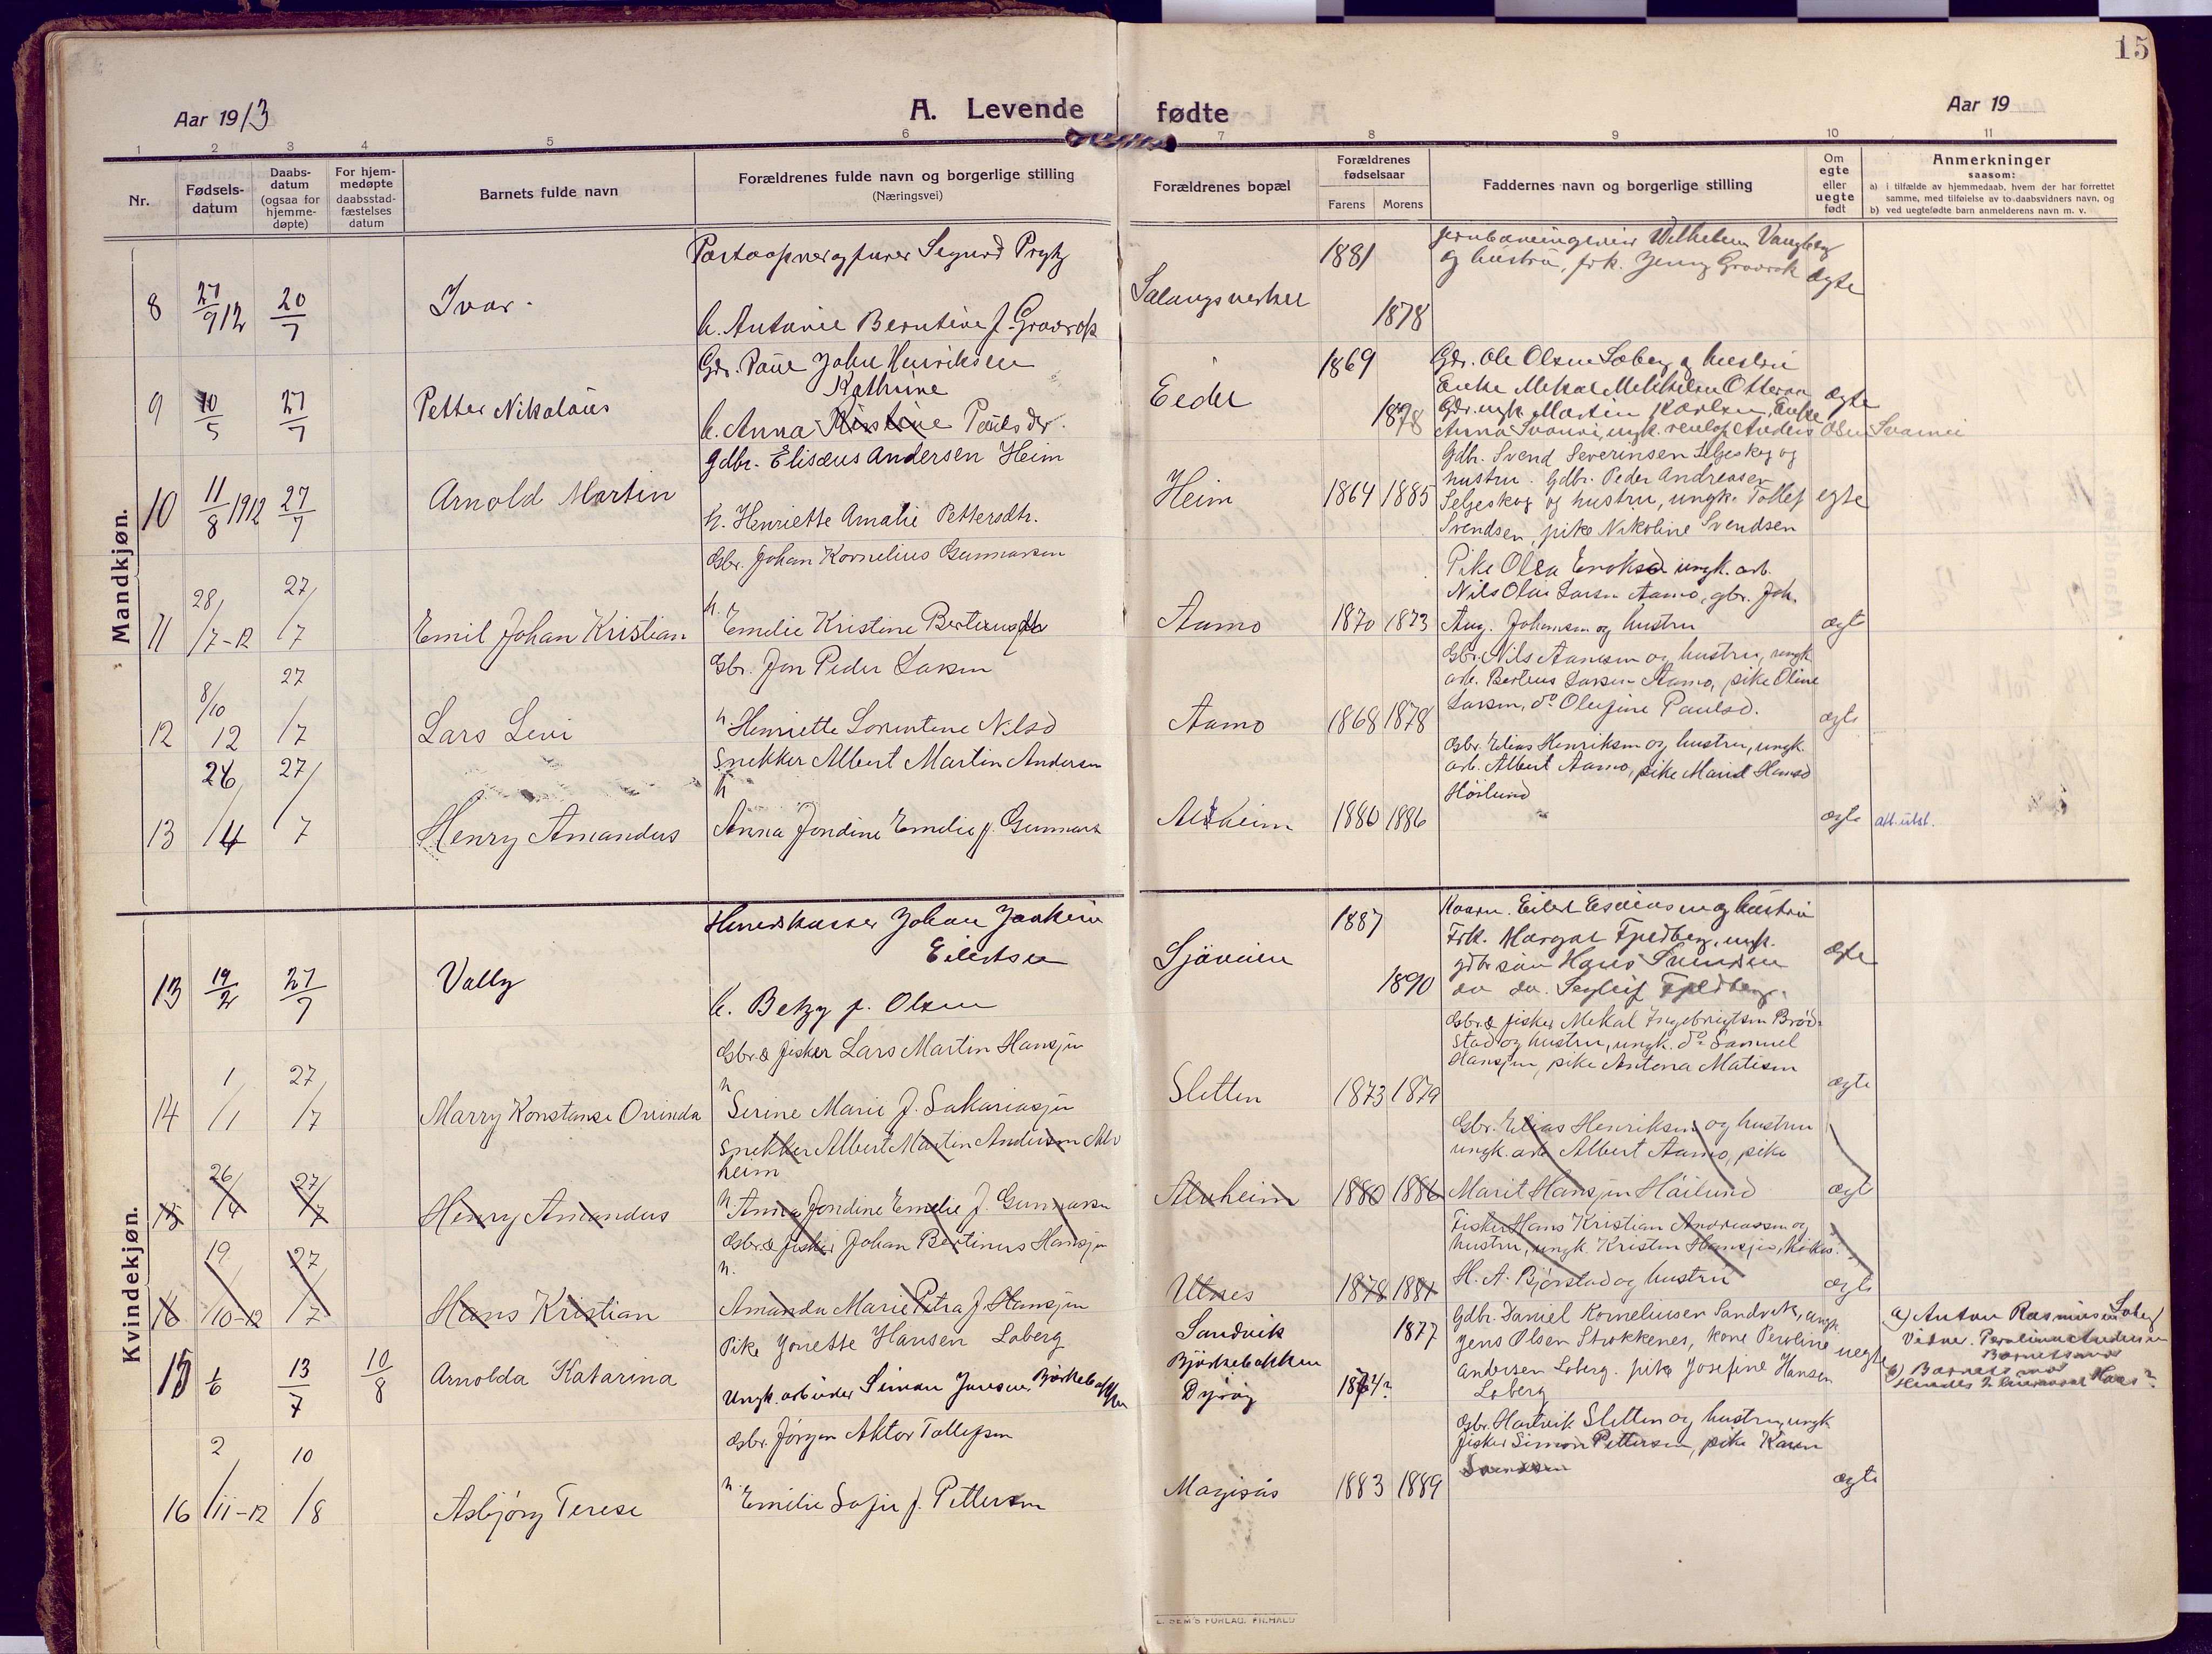 15
Aar 1913
A. Levende fødte
Aar 19
1 2 3 4 5 6 7 8 9 10 11
Nr.
Fødsels-
datum
Daabs-
datum
(ogsaa for
hjemme-
døpte)
For hjem-
medøpte
daabsstad-
fæstelses
datum
Barnets fulde navn
Forældrenes fulde navn og borgerlige stilling
(Næringsvei)
Forældrenes bopæl
Forældrenes
fødselsaar
Farens Morens
Faddernes navn og borgerlige stilling
Om
egte
eller
uegte
født
Anmerkninger
saasom:
a) i tilfælde av hjemmedaab, hvem der har forrettet
samme, med tilføielse av to daabsvidners navn, og
b) ved uegtefødte barn anmelderens navn m. v.
Mandkjøn.
8 27/9 12 20/7 Ivar
Sigurd
h. Antonie Berntine f. Gravrok
Salangsverket 1881 1878
Vangberg
og hustru, frk. Jenny Gravrok
ægte
9 10/5 27/7 Petter Nikolaus
Gdr. Paul John Henriksen
Kathrine
h. Anna Kristine Paulsdr.
1869 1878
Gdr. Ole Olsen Soberg og hustru
Gdr. ungk. Martin Karlsen, Enke
ægte
10 11/8 1912 27/7 Arnold Martin
Gdbr. Elisæus Andersen Heim
h. Henriette Amalie Pettersdtr.
Heim 1864 1885
Gdbr. Svend Severinsen Seljeskog og
hustru. Gdbr. Peder Andreasen
Seljeskog og hustru, ungk. Tollef
Svendsen, pike Nikoline Svendsen
egte
11 28/7-12 27/7 Emil Johan Kristian
Gbr. Johan Kornelius Gunnarsen
h. Emelie Kristine
Aamo 1870 1873
Pike Olea Enoksd ungk. arb.
Nils Olai Larsen Aamo, gbr. Joh.
Aug. Johansen og hustru
ægte
12 8/10 12 27/7 Lars Levi
Gbr. Jon Peder Larsen
h. Henriette Lorentine Nilsd
Aamo 1868 1878
Gbr. Nils Aanesen og hustru, ungk.
arb. Berteus Larsen Aamo, pike Oline
Larsen, do Olufine Paulsd.
ægte
13 26/4 27/7 Henry Amandus
Snekker Albert Martin Andersen
h
Anna Jondine Emelie f. Gunnars
Alvheim 1880 1886
Gbr. Elias Henriksen og hustru, ungk.
arb. Albert Aamo, pike Marid Hansd
Høilund
ægte
att. utst.
Kvindekjøn.
13 19/2 27/7 Vally
Johan Joakim
Eilertsen
h. Betzy f. Olsen
Sjøveien 1887 1890
Eilert Esaiassen og hustru
Frk. Margat Fjeldberg, ungk.
gdbr søn Hans
ægte
14 1/1 27/7 Marry Konstanse Ovinda
Gbr. & fisker Lars Martin Hansen
h
Serine Marie f. Sakariassen
Sletten 1873 1879
Gbr. & fisker Mekal Ingebrigtsen Brød-
stad og hustru, ungk. do Samuel
Hansen, pike Antona Matisen
ægte
15 26/4 27/7 Henry Amandus
Snekker Albert Martin Andersen Alv
heim
h Anna Jondine Emelie f. Gunnarsen
Alvheim 1880 1886
Gbr. Elias Henriksen og hustru
ungk. arb Albert Aamo, pike
Marit Hansen Høilund
ægt
16 19/10-12 27/7 Hans Kristian
Gbr. & fisker Johan Bertinus Hansen
h.
Amanda Marie Petra f. Hansen
Utnes 1878 1881
Fisker Hans Kristian Andreassen og
hustru, ungk. Kristen Hansen,
H. A. Bjørstad og hustru
ægte
15 1/6 13/7 10/8 Arnolda Katarina
Pike Jonette Hansen Loberg
Ungk. arbeider Simon Jensen, Bjørkebakken
Sandvik
Bjørkebakken
Dyrøy
1877
1874?
Gdbr. Daniel Korneliussen Sandvik, ungk.
Jens Olsen Strokkenes, kone Peroline
Andersen Loberg. pike Josefine Hansen
Loberg
uegte
a) Anton Rasmussen Loberg
Vidne. Peroline Andersen
Barnets mor
b) Barnets mor
16 2/11-12 10/8 Asbjørg Terese
Gbr. Jørgen Aktor Tollefsen
h. Emilie Sofie f. Pettersen
Magisås 1883 1889
Gbr. Hartvik Sletten og hustru, ungk
fisker Simon Pettersen, pike Karen
Svendsen
ægte
E. SEM'S FORLAG. FR.HALD